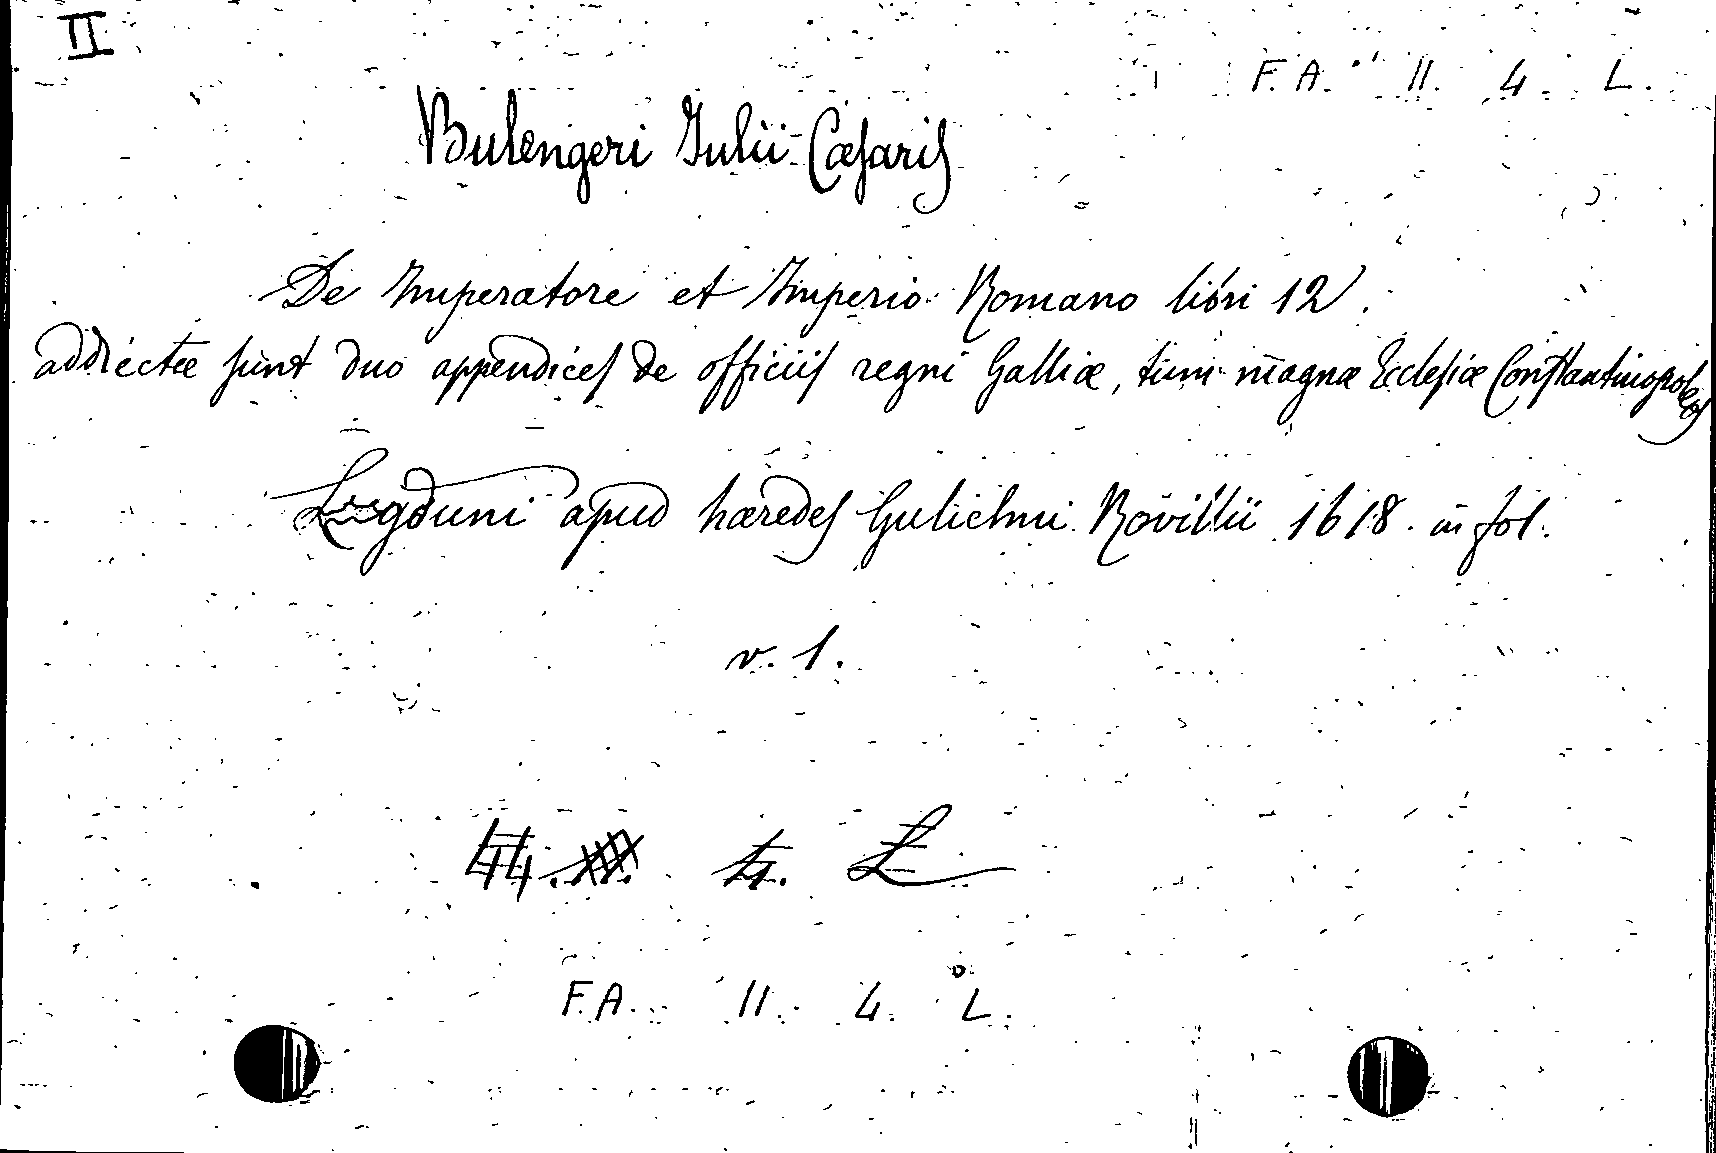 II
F. A. 11. 4. L.
Bulengeri Iulii Cæsaris
De Imperatore et Imperio Romano libri 12.
addiectæ sunt duo appendices de officiis regni Galliæ, tum magnæ Ecclesiæ Constantinopoleos
Lugduni apud hæredes Gulielmi Rovillii 1618. in fol.
v. 1.
44. 4. L
F. A. 11. 4. L.